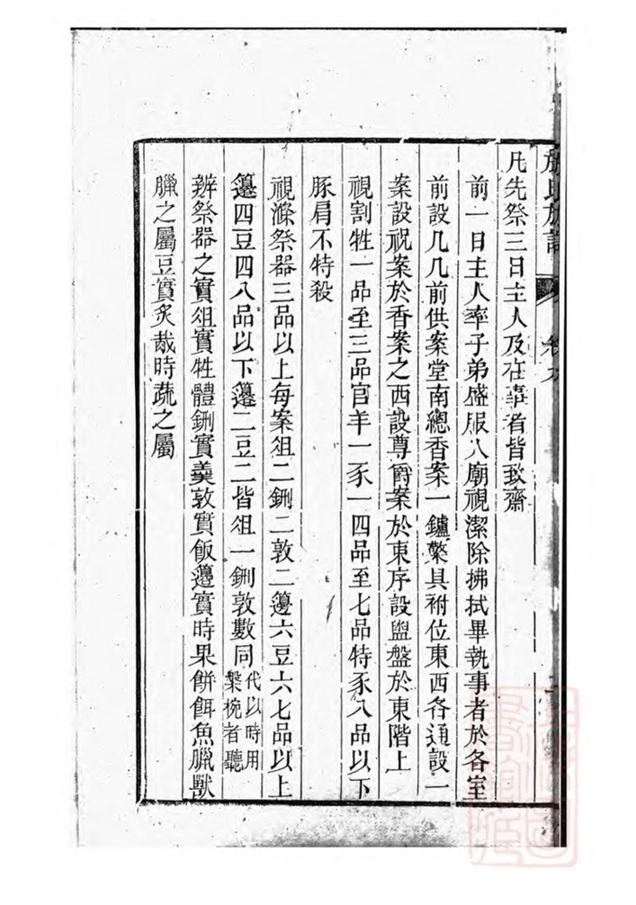 凡先祭三日主人及在事者皆致齋
前一日主人率子弟盛服入廟視潔除拂拭畢執事者於各室
前設几几前供案堂南總香案一鑪檠具祔位東西各通設一
案設祝案於香案之西設尊爵案於東序設盥盤於東階上
視割牲一品至三品官羊一豕一四品至七品特豕八品以下
豚肩不特殺
視滌祭器三品以上每案俎二鉶二敦二籩六豆六七品以上
籩四豆四八品以下籩二豆二皆俎一鉶敦數同代以時用
槃椀者聽
辨祭器之實俎實牲體鉶實羹敦實飯籩實時果餅餌魚臘獸
臘之屬豆實炙胾時蔬之屬